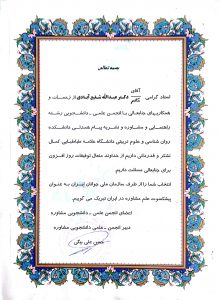 بسمه تعالی
آقای
استاد گرامی دکتر عبدالله شفیع آبادی از زحمات و
خانم
همکاریهای جنابعالی با انجمن علمی - دانشجویی رشته
راهنمایی و مشاوره و نشریه پیام همدلی دانشکده
روان شناسی و علوم تربیتی دانشگاه علامه طباطبایی کمال
تشکر و قدردانی داریم از خداوند متعال توفیقات روز افزون
برای جنابعالی مسئلت داریم.
انتخاب شما را از طرف سازمان ملی جوانان ایران به عنوان
پیشکسوت علم مشاوره در ایران تبریک می گوییم.
اعضای انجمن علمی - دانشجویی مشاوره
دبیر انجمن علمی دانشجویی مشاوره
حسین علی بیگی